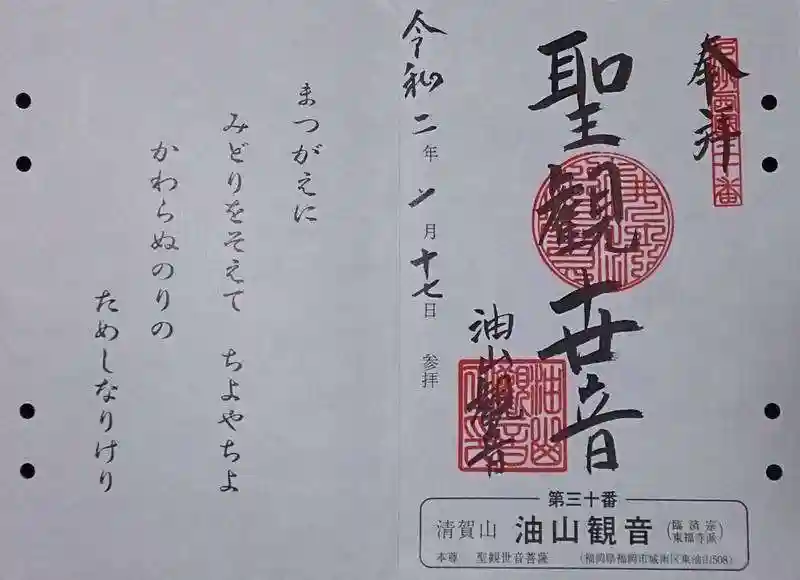 奉拝
聖観世音
油山観音
令和二年 七月十七日 参拝
第三十番
清賀山 油山観音 (臨済宗 東福寺派)
本尊 聖観世音菩薩 (福岡県福岡市城南区東油山508)
まつがえに
みどりをそえて ちよやちよ
かわらぬのりの
ためしなりけり